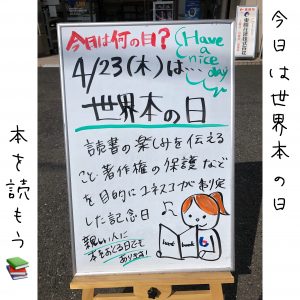 今日は世界本の日
今日は何の日?
Have
a
nice
day
4/23(木)は…
世界本の日
読書の楽しみを伝える
こと・著作権の保護など
を目的にユネスコが制定
した記念日
親しい人に
本をおくる日でも
あります!
best
book
本を読もう